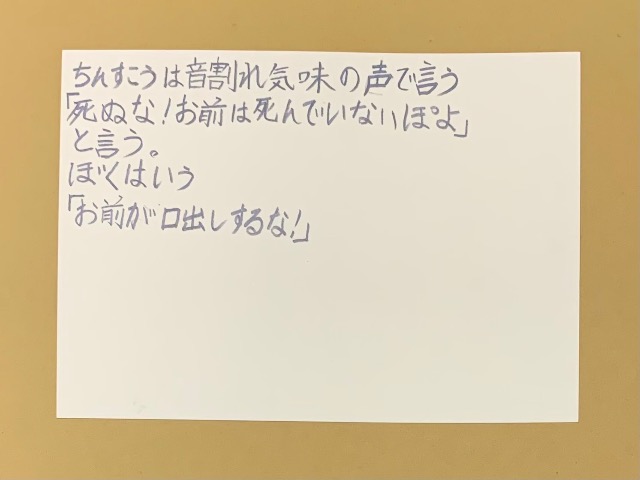 ちんすこうは音割れ気味の声で言う
「死ぬな!お前は死んでいないぽよ」
と言う。
ぼくはいう
「お前が口出しするな!」